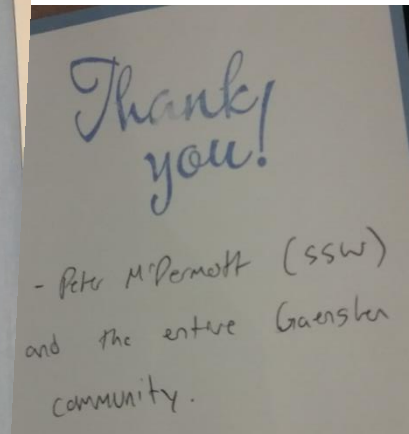 Thank
you!
- Peter McDermott (SSW)
and the entire Gaensler
community.